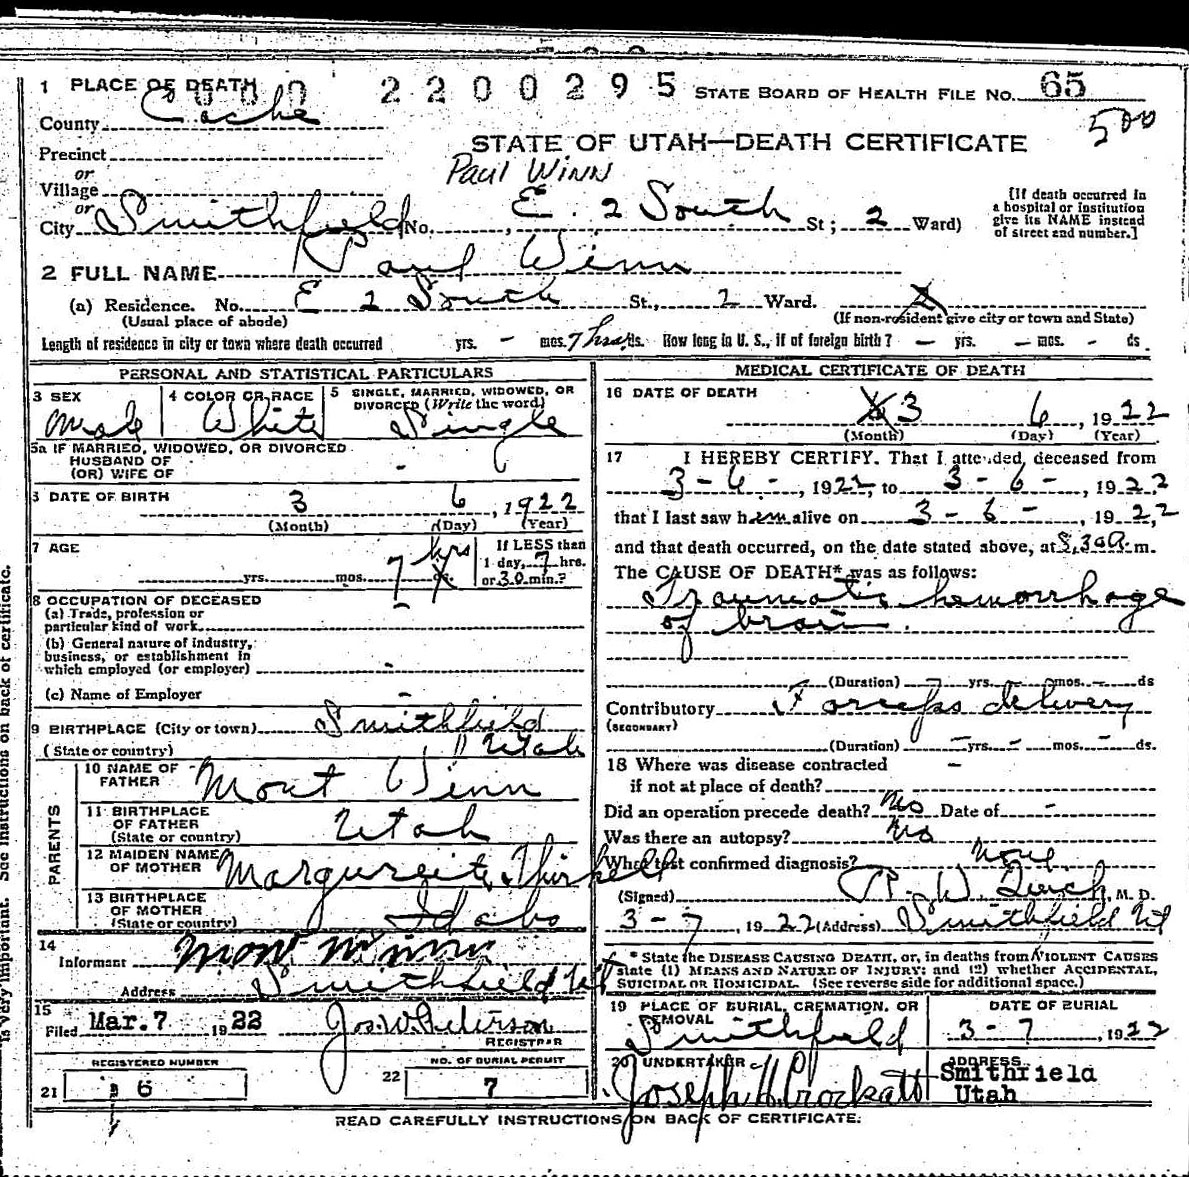 1 PLACE OF DEATH 000 2200295 STATE BOARD OF HEALTH FILE NO. 65
County Cache 500
STATE OF UTAH—DEATH CERTIFICATE
Precinct
or
Village
Paul Winn
or
City Smithfield No. E. 2 South St; 2 Ward)
[If death occurred in
a hospital or institution
give its NAME instead
of street and number.]
2 FULL NAME Paul Winn
(a) Residence. No. E 2 South St., 2 Ward.
(Usual place of abode) (If non-resident give city or town and State)
Length of residence in city or town where death occurred yrs. - mos. 7 hrs ds. How long in U. S., if of foreign birth? - yrs. - mos. - ds
PERSONAL AND STATISTICAL PARTICULARS
3 SEX Male
4 COLOR OR RACE White
5 SINGLE, MARRIED, WIDOWED, OR
DIVORCED (Write the word)
Single
5a IF MARRIED, WIDOWED, OR DIVORCED
HUSBAND OF
(OR) WIFE OF -
6 DATE OF BIRTH 3 6, 1922
(Month) (Day) (Year)
7 AGE yrs. mos. 7 hrs ds.
If LESS than
1 day, 7 hrs.
or 30 min.?
8 OCCUPATION OF DECEASED
(a) Trade, profession or
particular kind of work -
(b) General nature of industry,
business, or establishment in
which employed (or employer) -
(c) Name of Employer -
9 BIRTHPLACE (City or town) Smithfield
(State or country) Utah
PARENTS
10 NAME OF
FATHER Mont Winn
11 BIRTHPLACE
OF FATHER
(State or country) Utah
12 MAIDEN NAME
OF MOTHER Marguerite Thirkell
13 BIRTHPLACE
OF MOTHER
(State or country) Idaho
14
Informant Mont Winn
Address Smithfield Ut
15
Filed Mar. 7 1922 Jos. W. Peterson
REGISTRAR
REGISTERED NUMBER
21 6
NO. OF BURIAL PERMIT
22 7
MEDICAL CERTIFICATE OF DEATH
16 DATE OF DEATH 3 6, 1922
(Month) (Day) (Year)
17 I HEREBY CERTIFY. That I attended, deceased from
3-6-, 1922, to 3-6-, 1922
that I last saw him alive on 3-6-, 1922,
and that death occurred, on the date stated above, at 8,30 A.m.
The CAUSE OF DEATH* was as follows:
Traumatic hemorrhage
of brain.
(Duration) - yrs. - mos. - ds
Contributory Forceps delivery
(SECONDARY)
(Duration) - yrs. - mos. - ds.
18 Where was disease contracted
if not at place of death? -
Did an operation precede death? No Date of -
Was there an autopsy? No
What test confirmed diagnosis? None
(Signed) M. D.
3-7, 1922 (Address) Smithfield Ut
* State the DISEASE CAUSING DEATH, or, in deaths from VIOLENT CAUSES
state (1) MEANS AND NATURE OF INJURY; and (2) whether ACCIDENTAL,
SUICIDAL OR HOMICIDAL. (See reverse side for additional space.)
19 PLACE OF BURIAL, CREMATION, OR
REMOVAL
Smithfield
DATE OF BURIAL
3-7, 1922
20 UNDERTAKER
Joseph H. Crockatt
ADDRESS
Smithfield
Utah
READ CAREFULLY INSTRUCTIONS ON BACK OF CERTIFICATE.
is very important. See instructions on back of certificate.